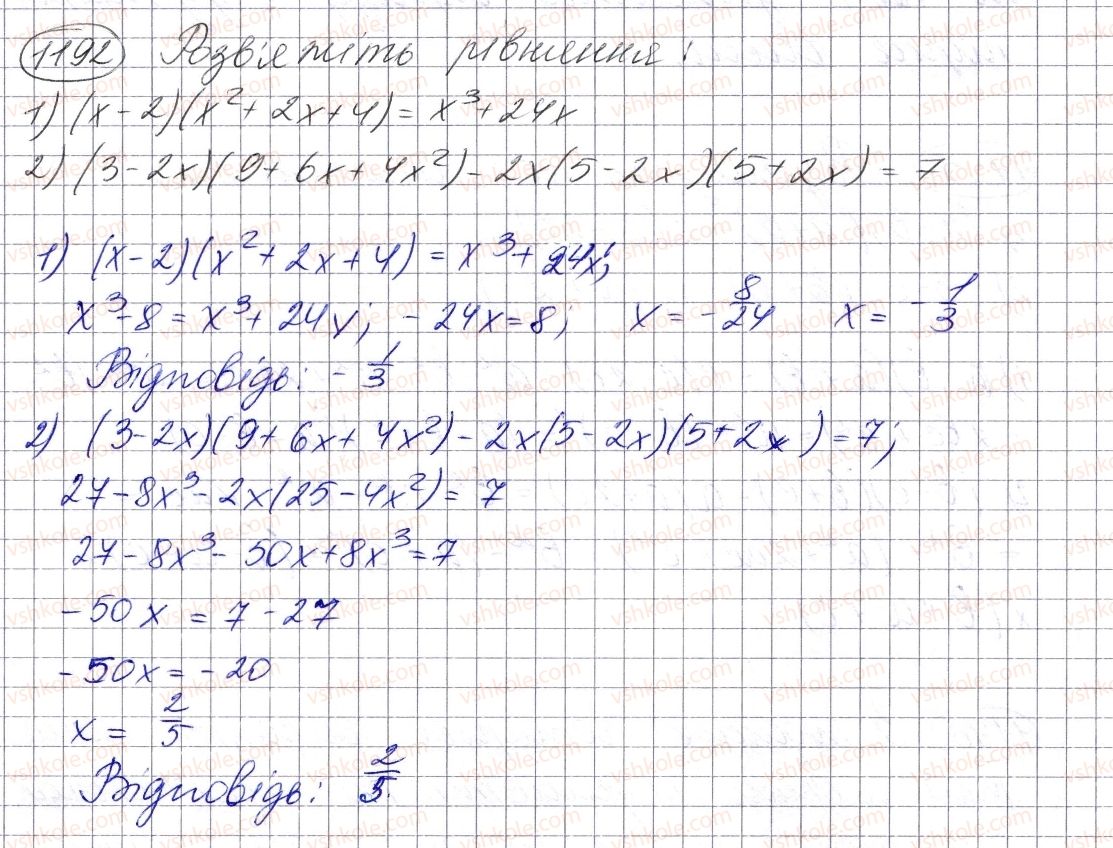 1192 Розв'яжіть рівняння:
1) (x-2)(x²+2x+4)=x³+24x
2) (3-2x)(9+6x+4x²)-2x(5-2x)(5+2x)=7
1) (x-2)(x²+2x+4)=x³+24x;
x³-8=x³+24x; -24x=8; x=-8/24 x=-1/3
Відповідь: -1/3
2) (3-2x)(9+6x+4x²)-2x(5-2x)(5+2x)=7;
27-8x³-2x(25-4x²)=7
27-8x³-50x+8x³=7
-50x=7-27
-50x=-20
x=2/5
Відповідь: 2/5.